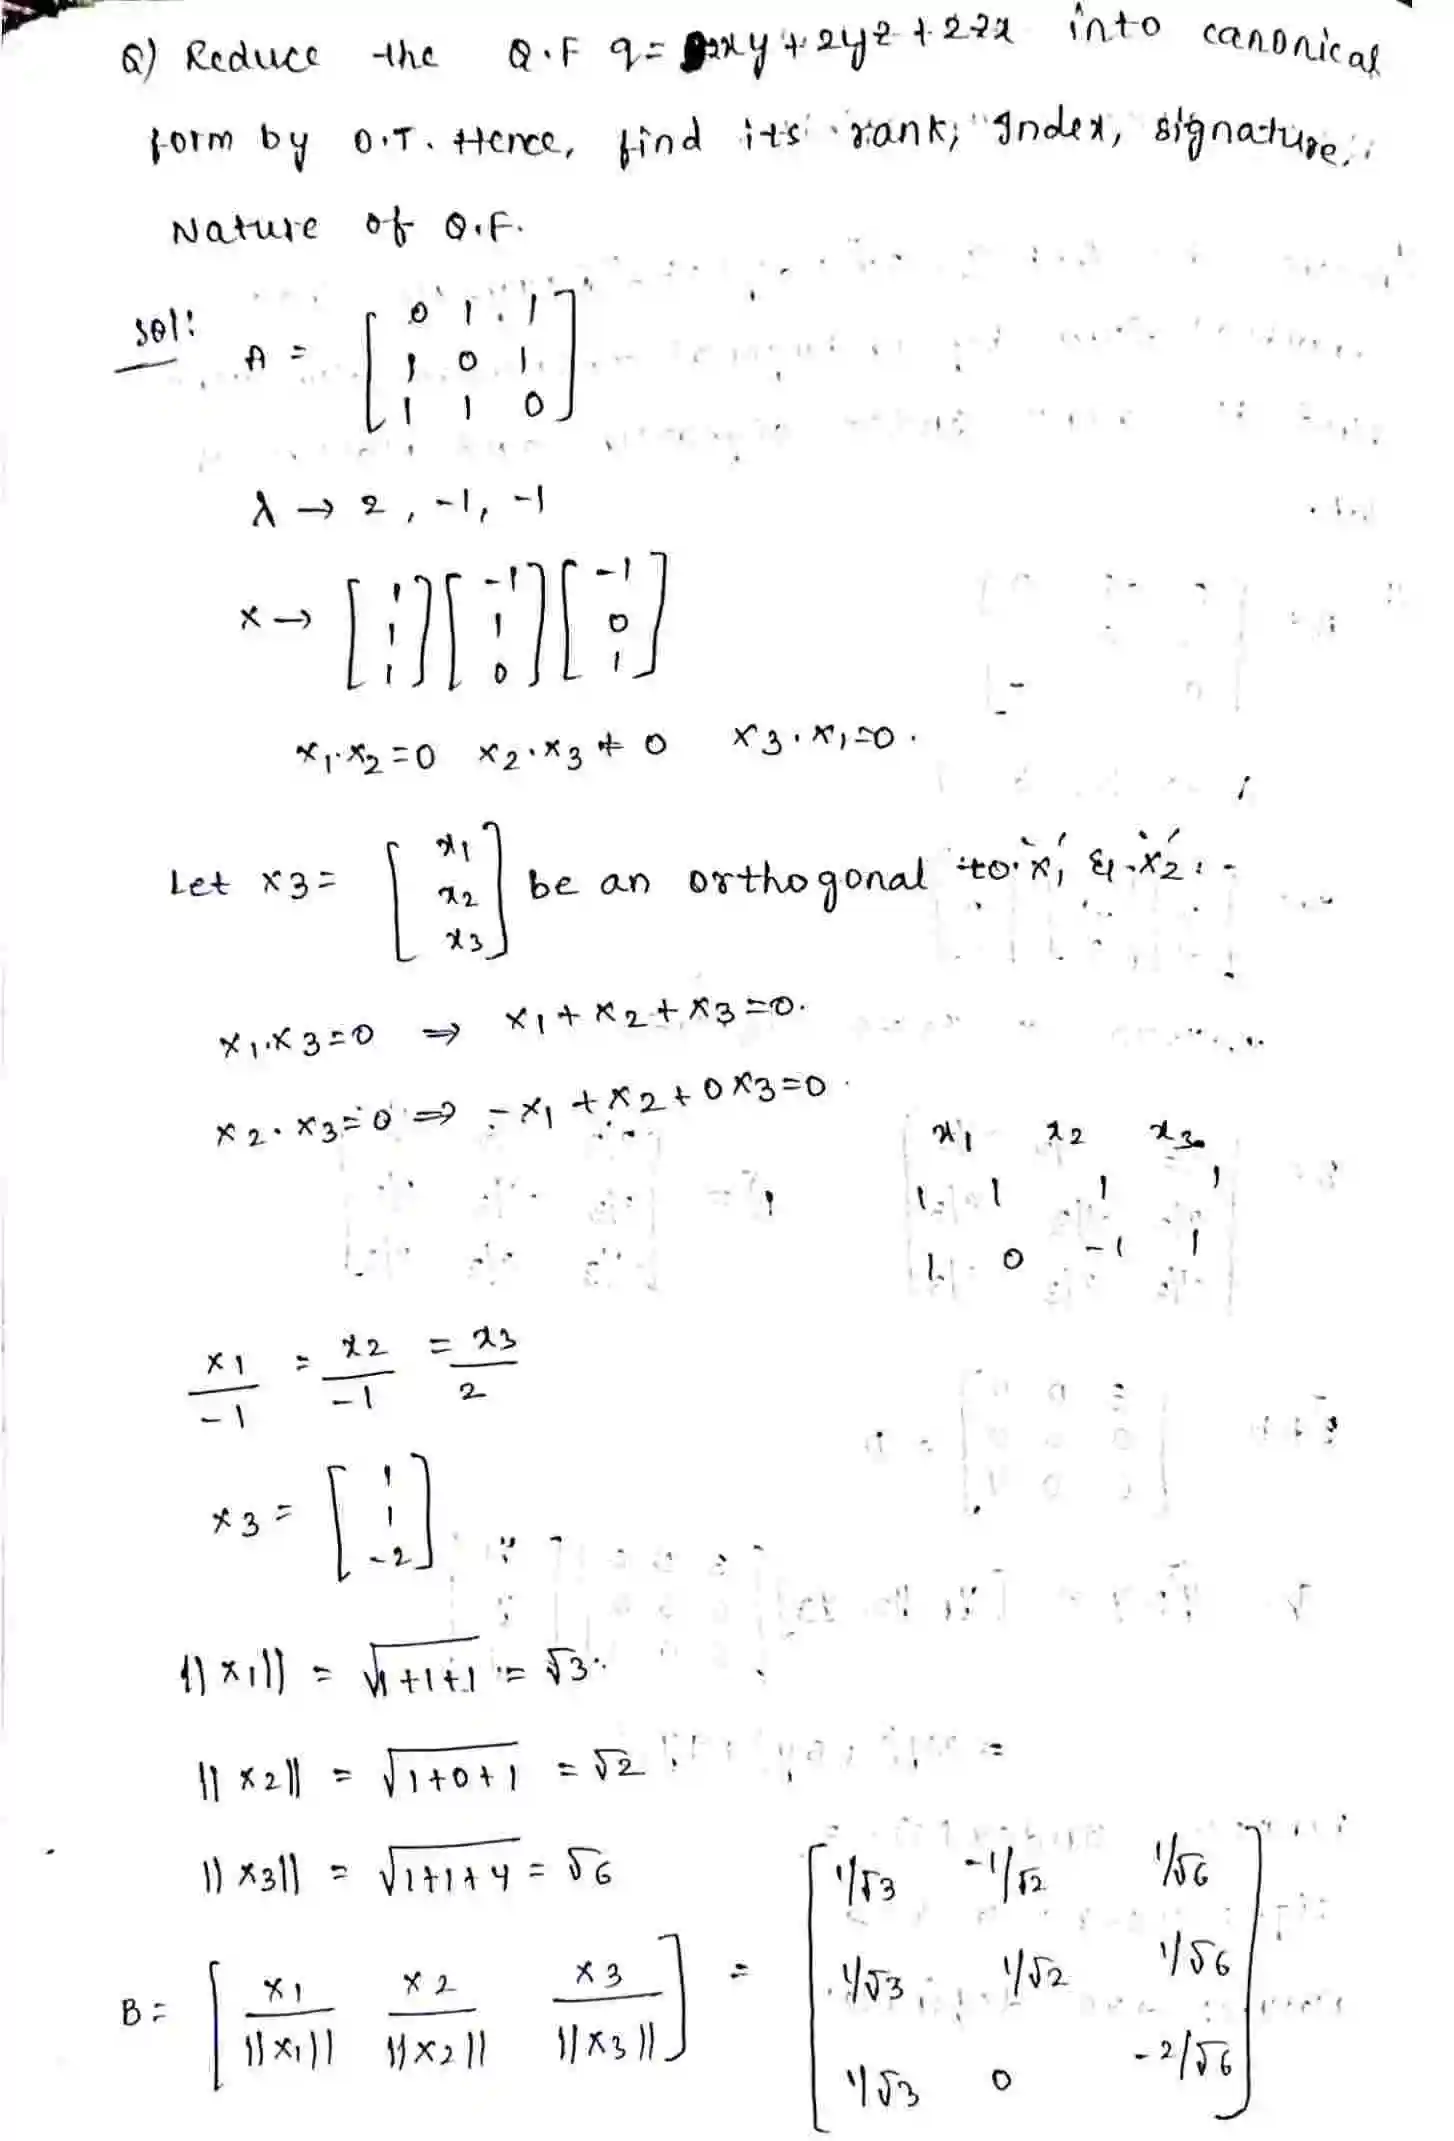 Q) Reduce the Q.F q= 2xy + 2yz + 2zx into canonical
form by O.T. Hence, find its rank, Index, signature,
Nature of Q.F.
sol:
A = [ 0 1 1
1 0 1
1 1 0 ]
λ → 2, -1, -1
x → [ 1 ] [ -1 ] [ -1 ]
1 1 0
1 0 1
x1.x2 = 0 x2.x3 ≠ 0 x3.x1 = 0.
Let x3 = [ x1 x2 x3 ] be an orthogonal to x1 & x2.
x1.x3 = 0 ⇒ x1 + x2 + x3 = 0.
x2.x3 = 0 ⇒ -x1 + x2 + 0x3 = 0.
x1 x2 x3
1 1 1 1
1 0 -1 1
x1/-1 = x2/-1 = x3/2
x3 = [ 1
1
-2 ]
||x1|| = √1+1+1 = √3.
||x2|| = √1+0+1 = √2
||x3|| = √1+1+4 = √6
B = [ x1/||x1|| x2/||x2|| x3/||x3|| ] = [ 1/√3 -1/√2 1/√6
1/√3 1/√2 1/√6
1/√3 0 -2/√6 ]